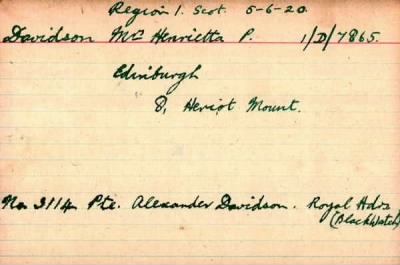 Region 1. Scot. 5-6-20.
Davidson Mrs Henrietta P. 1/D/7865.
Edinburgh
8, Heriot Mount.
No. 3114 Pte. Alexander Davidson. Royal Hdrs
(Black Watch)